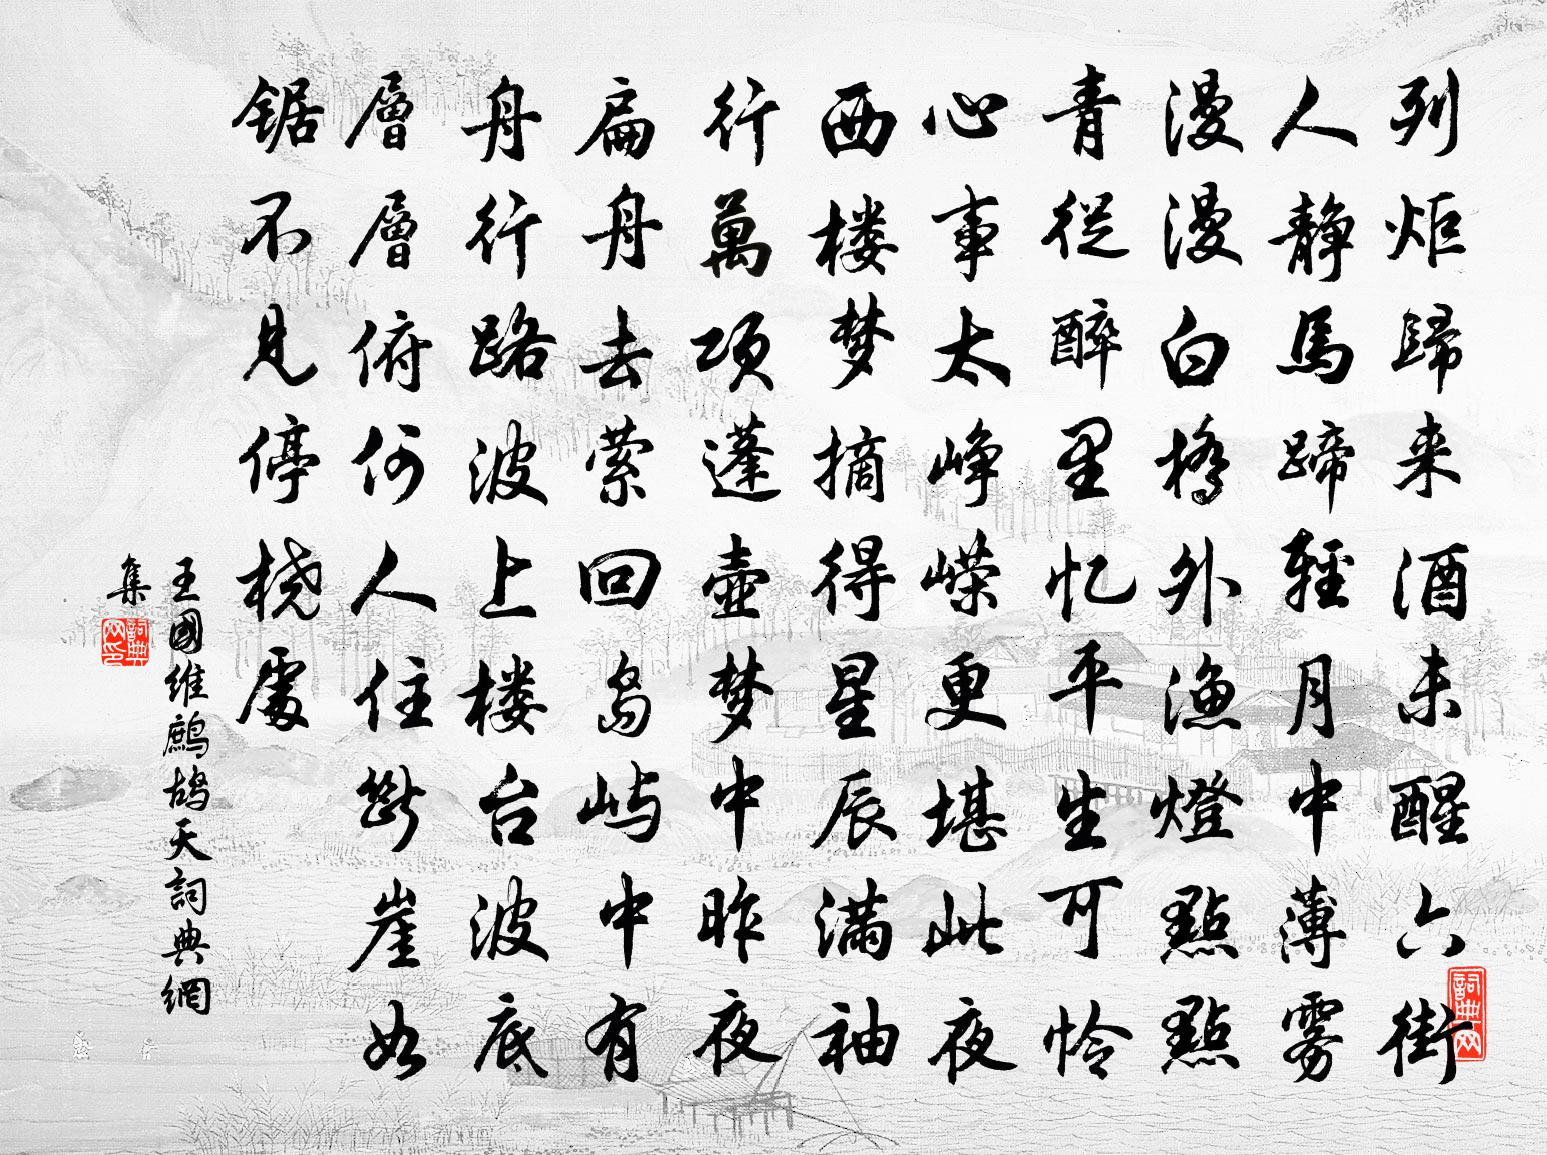 列炬歸来酒未醒六街
人静馬蹄輕月中薄雾
漫漫白橋外漁燈點點
青從醉里忆平生可怜
心事太峥嵘更堪此夜
西楼梦摘得星辰满袖
行萬项蓬壶梦中昨夜
扁舟去萦回岛屿中有
舟行路波上楼台波底
層層俯何人住斷崖如
锯不見停桡處
王國維鷓鴣天詞典網
集
詞典网
詞典网印